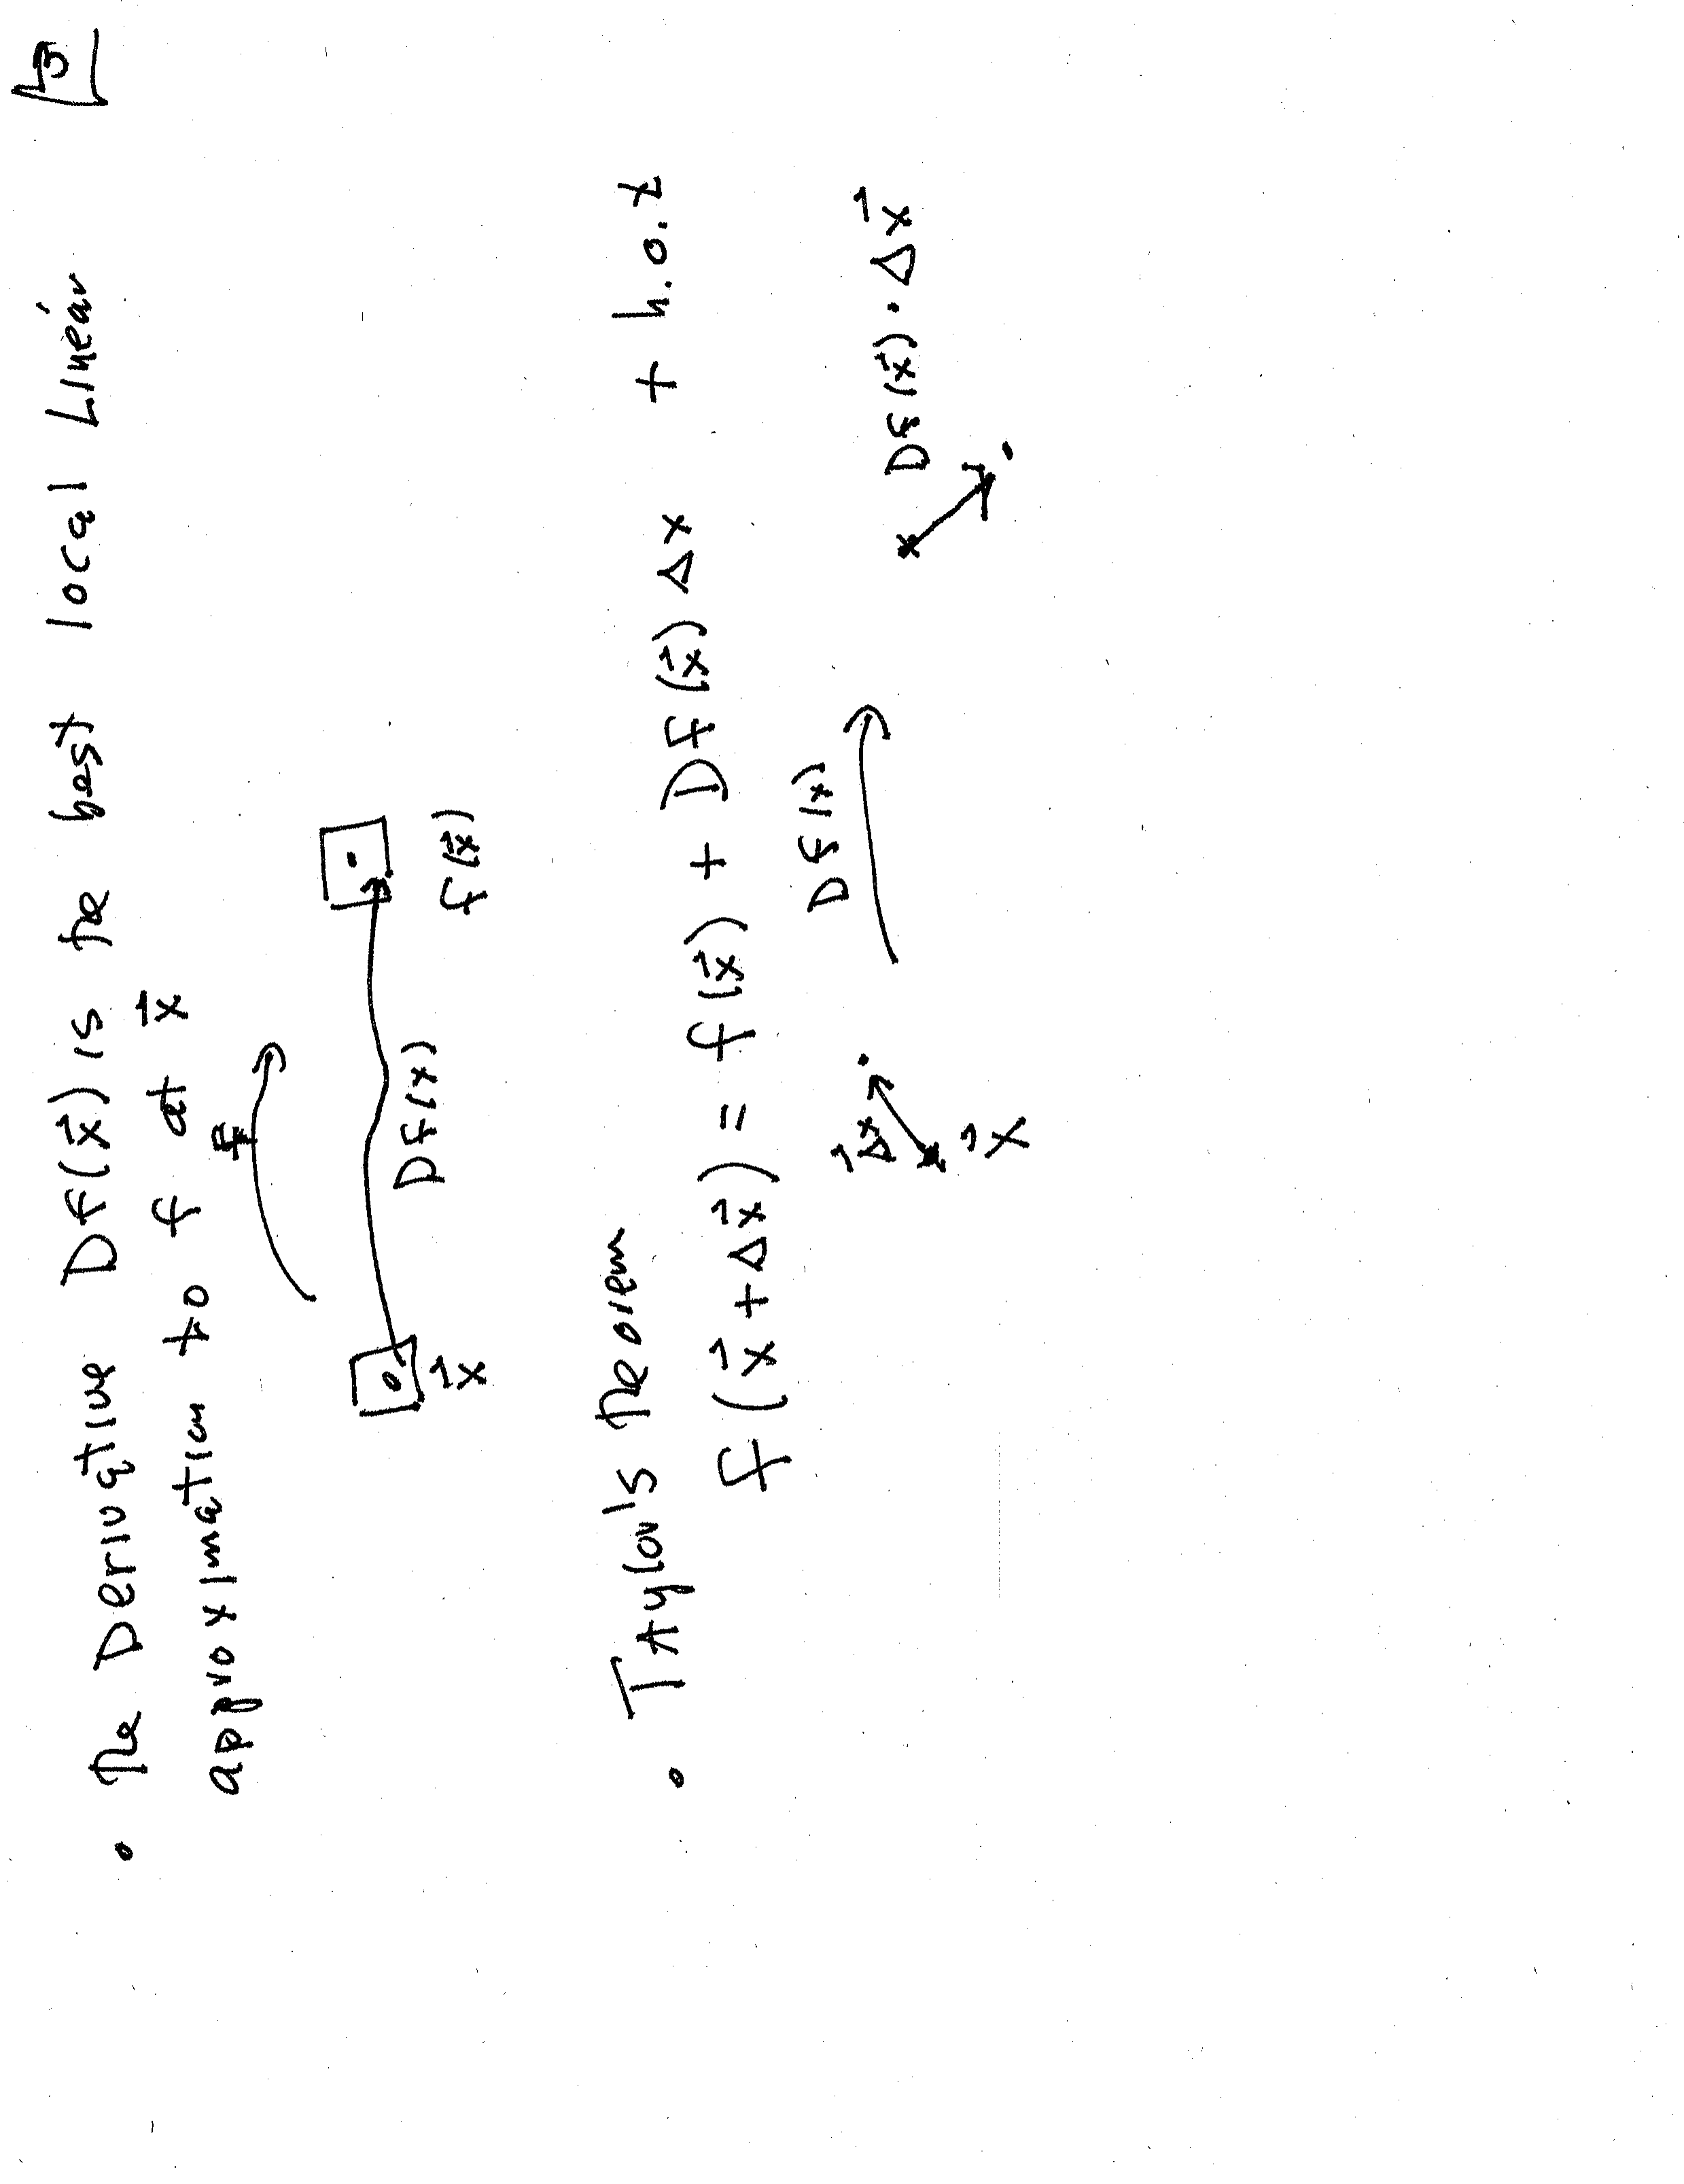 5
• The Derivative Df(x⃗) is the best local Linear
approximation to f at x⃗
f
Df(x)
x⃗ f(x⃗)
• TAylor's Theorem
f(x⃗ + Δx⃗) = f(x⃗) + Df(x⃗) Δx + h.o.t
Df(x)
Δx⃗ Df(x⃗) · Δx⃗
x⃗